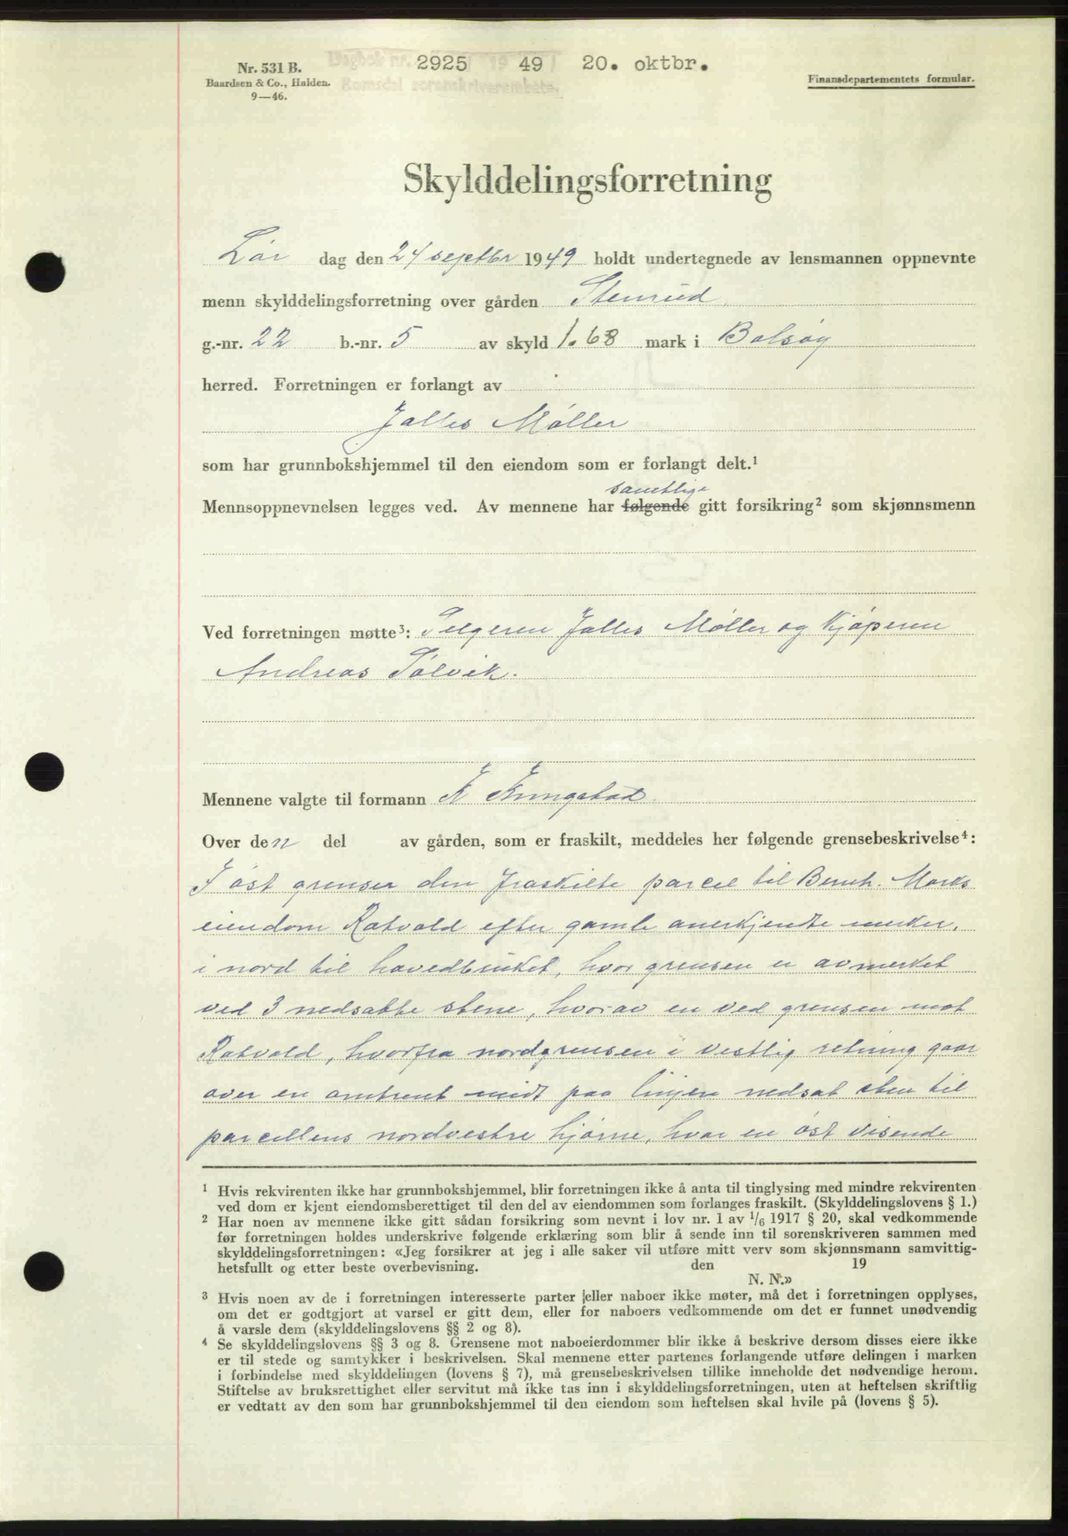 Nr. 531 B.
Baardsen & Co., Halden.
9—46.
Dagbok nr. 2925 1949 20. oktbr.
Romsdal sorenskriverembete.
Finansdepartementets formular.
Skylddelingsforretning
Lør dag den 24 septbr 1949 holdt undertegnede av lensmannen oppnevnte
menn skylddelingsforretning over gården Stenrud
g.-nr. 22 b.-nr. 5 av skyld 1.68 mark i Bolsøy
herred. Forretningen er forlangt av
Jalles Møller
som har grunnbokshjemmel til den eiendom som er forlangt delt.¹
samtlige
Mennsoppnevnelsen legges ved. Av mennene har følgende gitt forsikring² som skjønnsmenn
Ved forretningen møtte³: Selgeren Jalles Møller og Kjøperen
Andreas Sølvik.
Mennene valgte til formann K Kringstad.
Over den del av gården, som er fraskilt, meddeles her følgende grensebeskrivelse⁴:
I øst grenser den fraskilte parcel til Bernh. Morks
eiendom Ratvold efter gamle anerkjendte merker,
i nord til havedbruket, hvor grensen er avmerket
ved 3 nedsatte stene, hvorav en ved grensen mot
Ratvold, hvorfra nordgrensen i vestlig retning gaar
over en omtrent midt paa linjen nedsat sten til
parcellens nordvestre hjørne, hvor en øst visende
¹ Hvis rekvirenten ikke har grunnbokshjemmel, blir forretningen ikke å anta til tinglysing med mindre rekvirenten
ved dom er kjent eiendomsberettiget til den del av eiendommen som forlanges fraskilt. (Skylddelingslovens § 1.)
² Har noen av mennene ikke gitt sådan forsikring som nevnt i lov nr. 1 av 1/6 1917 § 20, skal vedkommende
før forretningen holdes underskrive følgende erklæring som blir å sende inn til sorenskriveren sammen med
skylddelingsforretningen: «Jeg forsikrer at jeg i alle saker vil utføre mitt verv som skjønnsmann samvittig-
hetsfullt og etter beste overbevisning. den 19
N. N.»
³ Hvis noen av de i forretningen interesserte parter eller naboer ikke møter, må det i forretningen opplyses,
om det er godtgjort at varsel er gitt dem, eller for naboers vedkommende om det er funnet unødvendig
å varsle dem (skylddelingslovens §§ 2 og 8).
⁴ Se skylddelingslovens §§ 3 og 8. Grensene mot naboeierdommer blir ikke å beskrive dersom disses eiere ikke
er til stede og samtykker i beskrivelsen. Skal mennene etter partenes forlangende utføre delingen i marken
i forbindelse med skylddelingen (lovens § 7), må grensebeskrivelsen tillike inneholde det nødvendige herom.
Stiftelse av bruksrettighet eller servitut må ikke tas inn i skylddelingsforretningen, uten at heftelsen skriftlig
er vedtatt av den som har grunnbokshjemmel til den eiendom som heftelsen skal hvile på (lovens § 5).